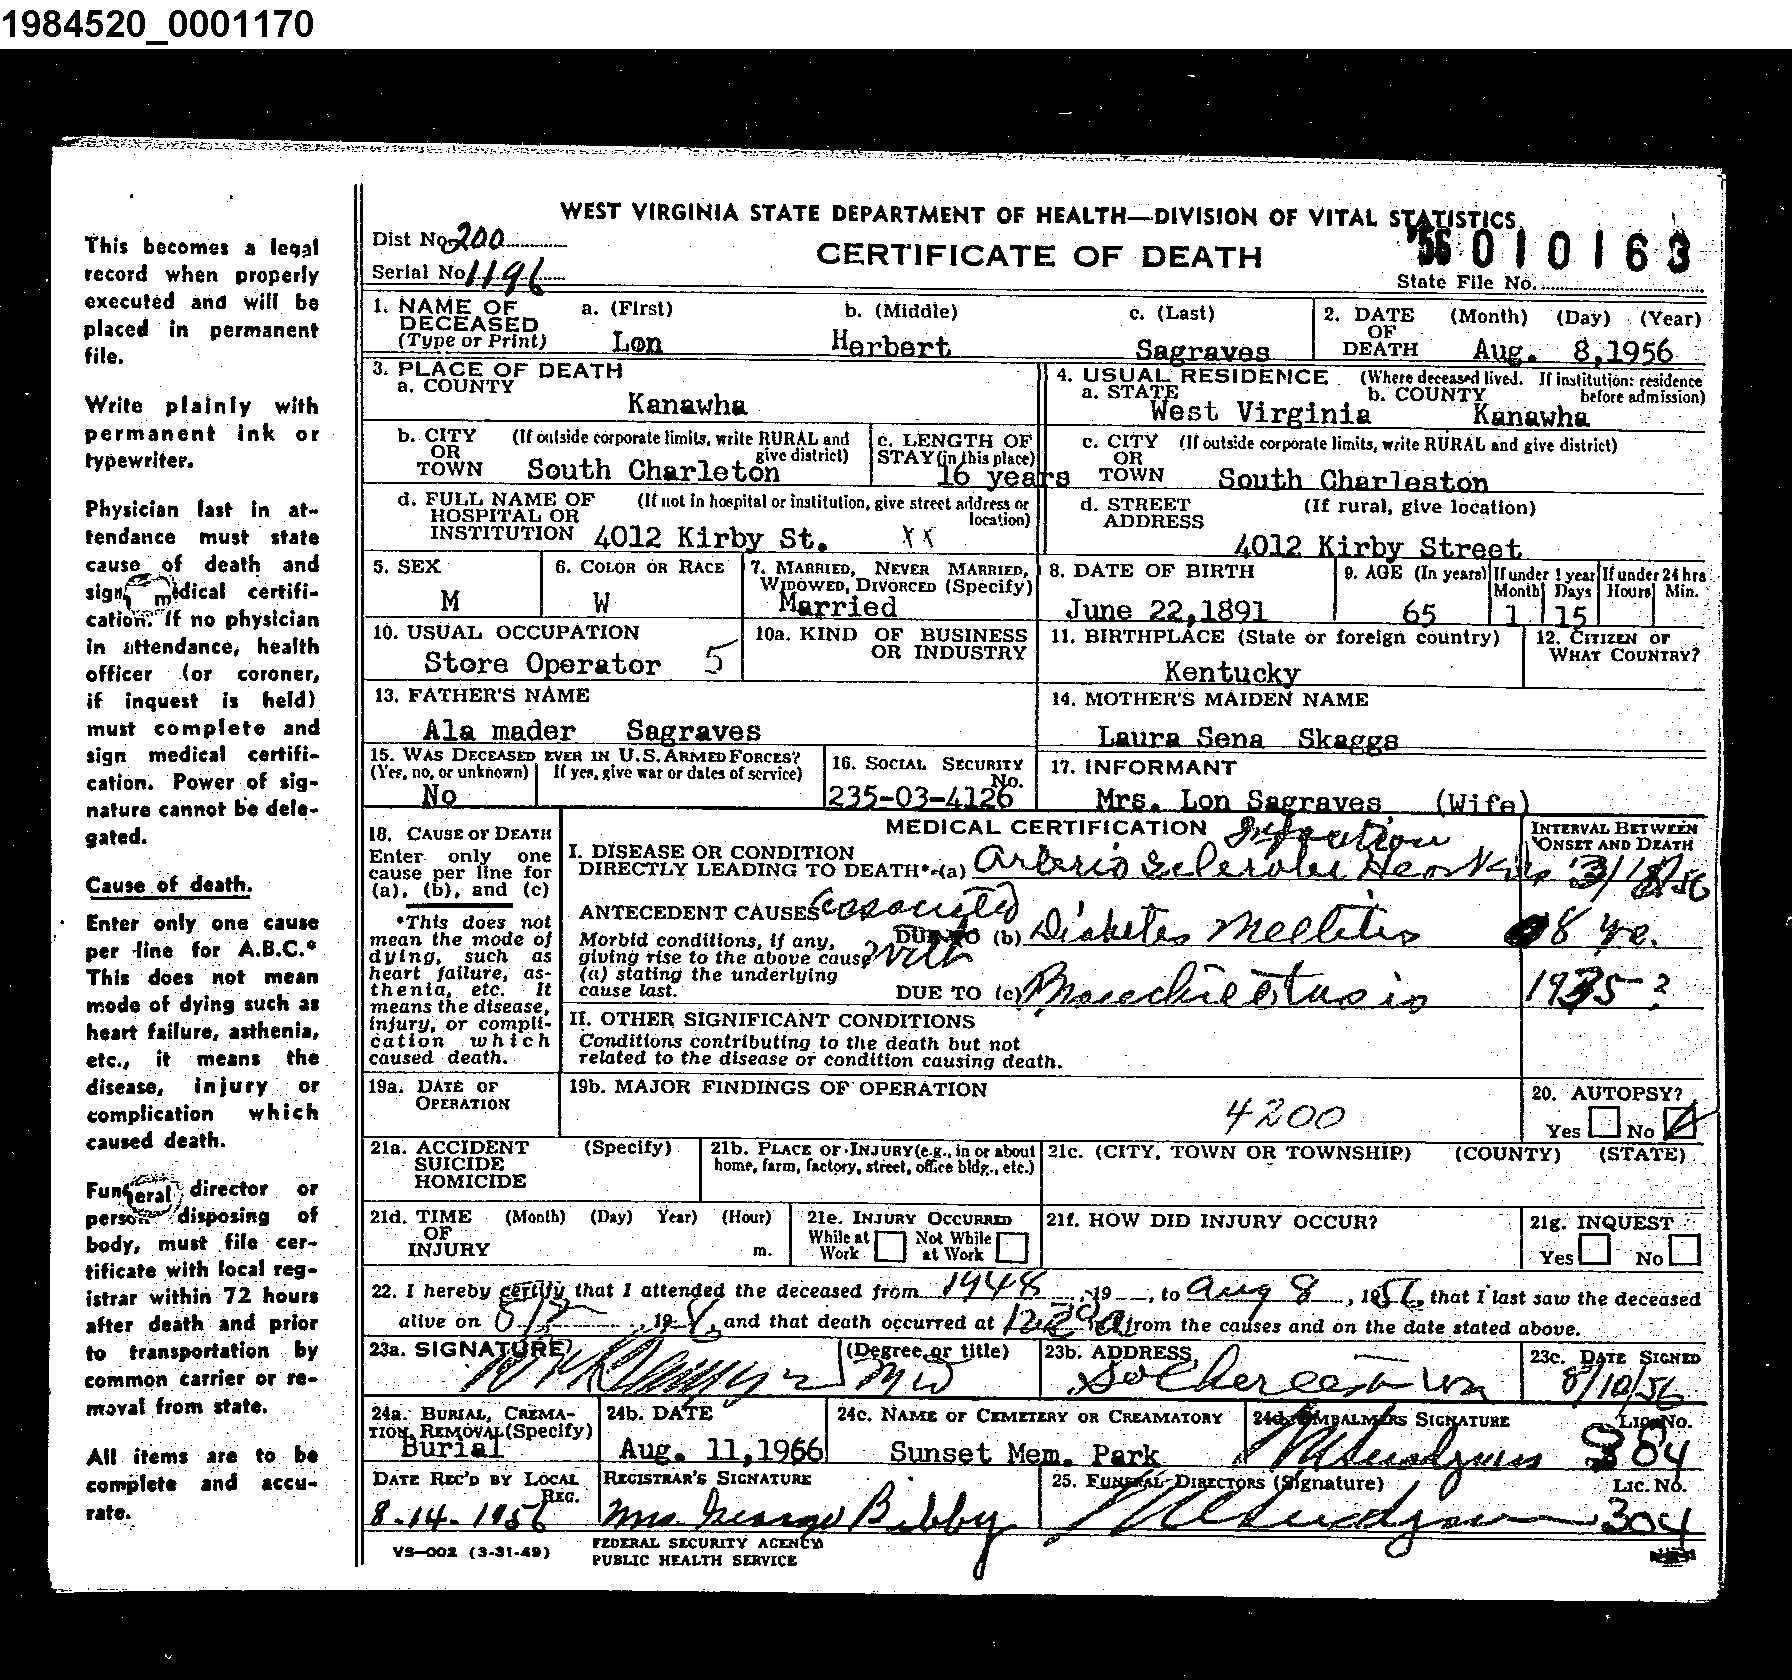 1984520_0001170
This becomes a legal
record when properly
executed and will be
placed in permanent
file.
Write plainly with
permanent ink or
typewriter.
Physician last in at-
tendance must state
cause of death and
sign medical certifi-
cation. If no physician
in attendance, health
officer (or coroner,
if inquest is held)
must complete and
sign medical certifi-
cation. Power of sig-
nature cannot be dele-
gated.
Cause of death.
Enter only one cause
per line for A.B.C.*
This does not mean
mode of dying such as
heart failure, asthenia,
etc., it means the
disease, injury or
complication which
caused death.
Funeral director or
person disposing of
body, must file cer-
tificate with local reg-
istrar within 72 hours
after death and prior
to transportation by
common carrier or re-
moval from state.
All items are to be
complete and accu-
rate.
WEST VIRGINIA STATE DEPARTMENT OF HEALTH—DIVISION OF VITAL STATISTICS
Dist No. 200
CERTIFICATE OF DEATH
'56 010163
Serial No. 1196
State File No.
1. NAME OF DECEASED (Type or Print) a. (First) b. (Middle) c. (Last)
Lon Herbert Sagraves
2. DATE OF DEATH (Month) (Day) (Year)
Aug. 8,1956
3. PLACE OF DEATH
a. COUNTY
Kanawha
4. USUAL RESIDENCE (Where deceased lived. If institution: residence before admission)
a. STATE b. COUNTY
West Virginia Kanawha
b. CITY OR TOWN (If outside corporate limits, write RURAL and give district)
South Charleton
c. LENGTH OF STAY (in this place)
16 years
c. CITY OR TOWN (If outside corporate limits, write RURAL and give district)
South Charleston
d. FULL NAME OF HOSPITAL OR INSTITUTION (If not in hospital or institution, give street address or location)
4012 Kirby St. XX
d. STREET ADDRESS (If rural, give location)
4012 Kirby Street
5. SEX
M
6. COLOR OR RACE
W
7. MARRIED, NEVER MARRIED, WIDOWED, DIVORCED (Specify)
Married
8. DATE OF BIRTH
June 22,1891
9. AGE (In years) If under 1 year Month Days If under 24 hrs Hours Min.
65 1 15
10. USUAL OCCUPATION
Store Operator 5
10a. KIND OF BUSINESS OR INDUSTRY
11. BIRTHPLACE (State or foreign country)
Kentucky
12. CITIZEN OF WHAT COUNTRY?
13. FATHER'S NAME
Ala mader Sagraves
14. MOTHER'S MAIDEN NAME
Laura Sena Skaggs
15. WAS DECEASED EVER IN U.S. ARMED FORCES?
(Yes, no, or unknown) If yes, give war or dates of service)
No
16. SOCIAL SECURITY No.
235-03-4126
17. INFORMANT
Mrs. Lon Sagraves (Wife)
18. CAUSE OF DEATH
Enter only one
cause per line for
(a), (b), and (c)
*This does not
mean the mode of
dying, such as
heart failure, as-
thenia, etc. It
means the disease,
injury, or compli-
cation which
caused death.
MEDICAL CERTIFICATION
INTERVAL BETWEEN ONSET AND DEATH
I. DISEASE OR CONDITION
DIRECTLY LEADING TO DEATH*-(a) Arterio Sclerotic Heart
ANTECEDENT CAUSES associated
Morbid conditions, if any,
giving rise to the above cause
(a) stating the underlying
cause last.
with DUE TO (b) Diabetes Mellitus 8 yr.
DUE TO (c) Bronchiectasis 1935?
II. OTHER SIGNIFICANT CONDITIONS
Conditions contributing to the death but not
related to the disease or condition causing death.
19a. DATE OF OPERATION
19b. MAJOR FINDINGS OF OPERATION
4200
20. AUTOPSY?
Yes No
21a. ACCIDENT SUICIDE HOMICIDE (Specify)
21b. PLACE OF INJURY (e.g., in or about home, farm, factory, street, office bldg., etc.)
21c. (CITY, TOWN OR TOWNSHIP) (COUNTY) (STATE)
21d. TIME OF INJURY (Month) (Day) Year) (Hour) m.
21e. INJURY OCCURRED
While at Work Not While at Work
21f. HOW DID INJURY OCCUR?
21g. INQUEST
Yes No
22. I hereby certify that I attended the deceased from 1948, 19 , to Aug 8, 1956, that I last saw the deceased
alive on , 19 , and that death occurred at m., from the causes and on the date stated above.
23a. SIGNATURE (Degree or title)
MD
23b. ADDRESS
So Charleston W Va
23c. DATE SIGNED
8/10/56
24a. BURIAL, CREMA-
TION, REMOVAL (Specify)
Burial
24b. DATE
Aug. 11,1966
24c. NAME OF CEMETERY OR CREAMATORY
Sunset Mem. Park
24d. EMBALMERS SIGNATURE Lic. No.
384
DATE REC'D BY LOCAL REG.
8-14-1956
REGISTRAR'S SIGNATURE
Mrs. George Bibby
25. FUNERAL DIRECTORS (Signature) Lic. No.
304
VS—002 (3-31-49)
FEDERAL SECURITY AGENCY
PUBLIC HEALTH SERVICE